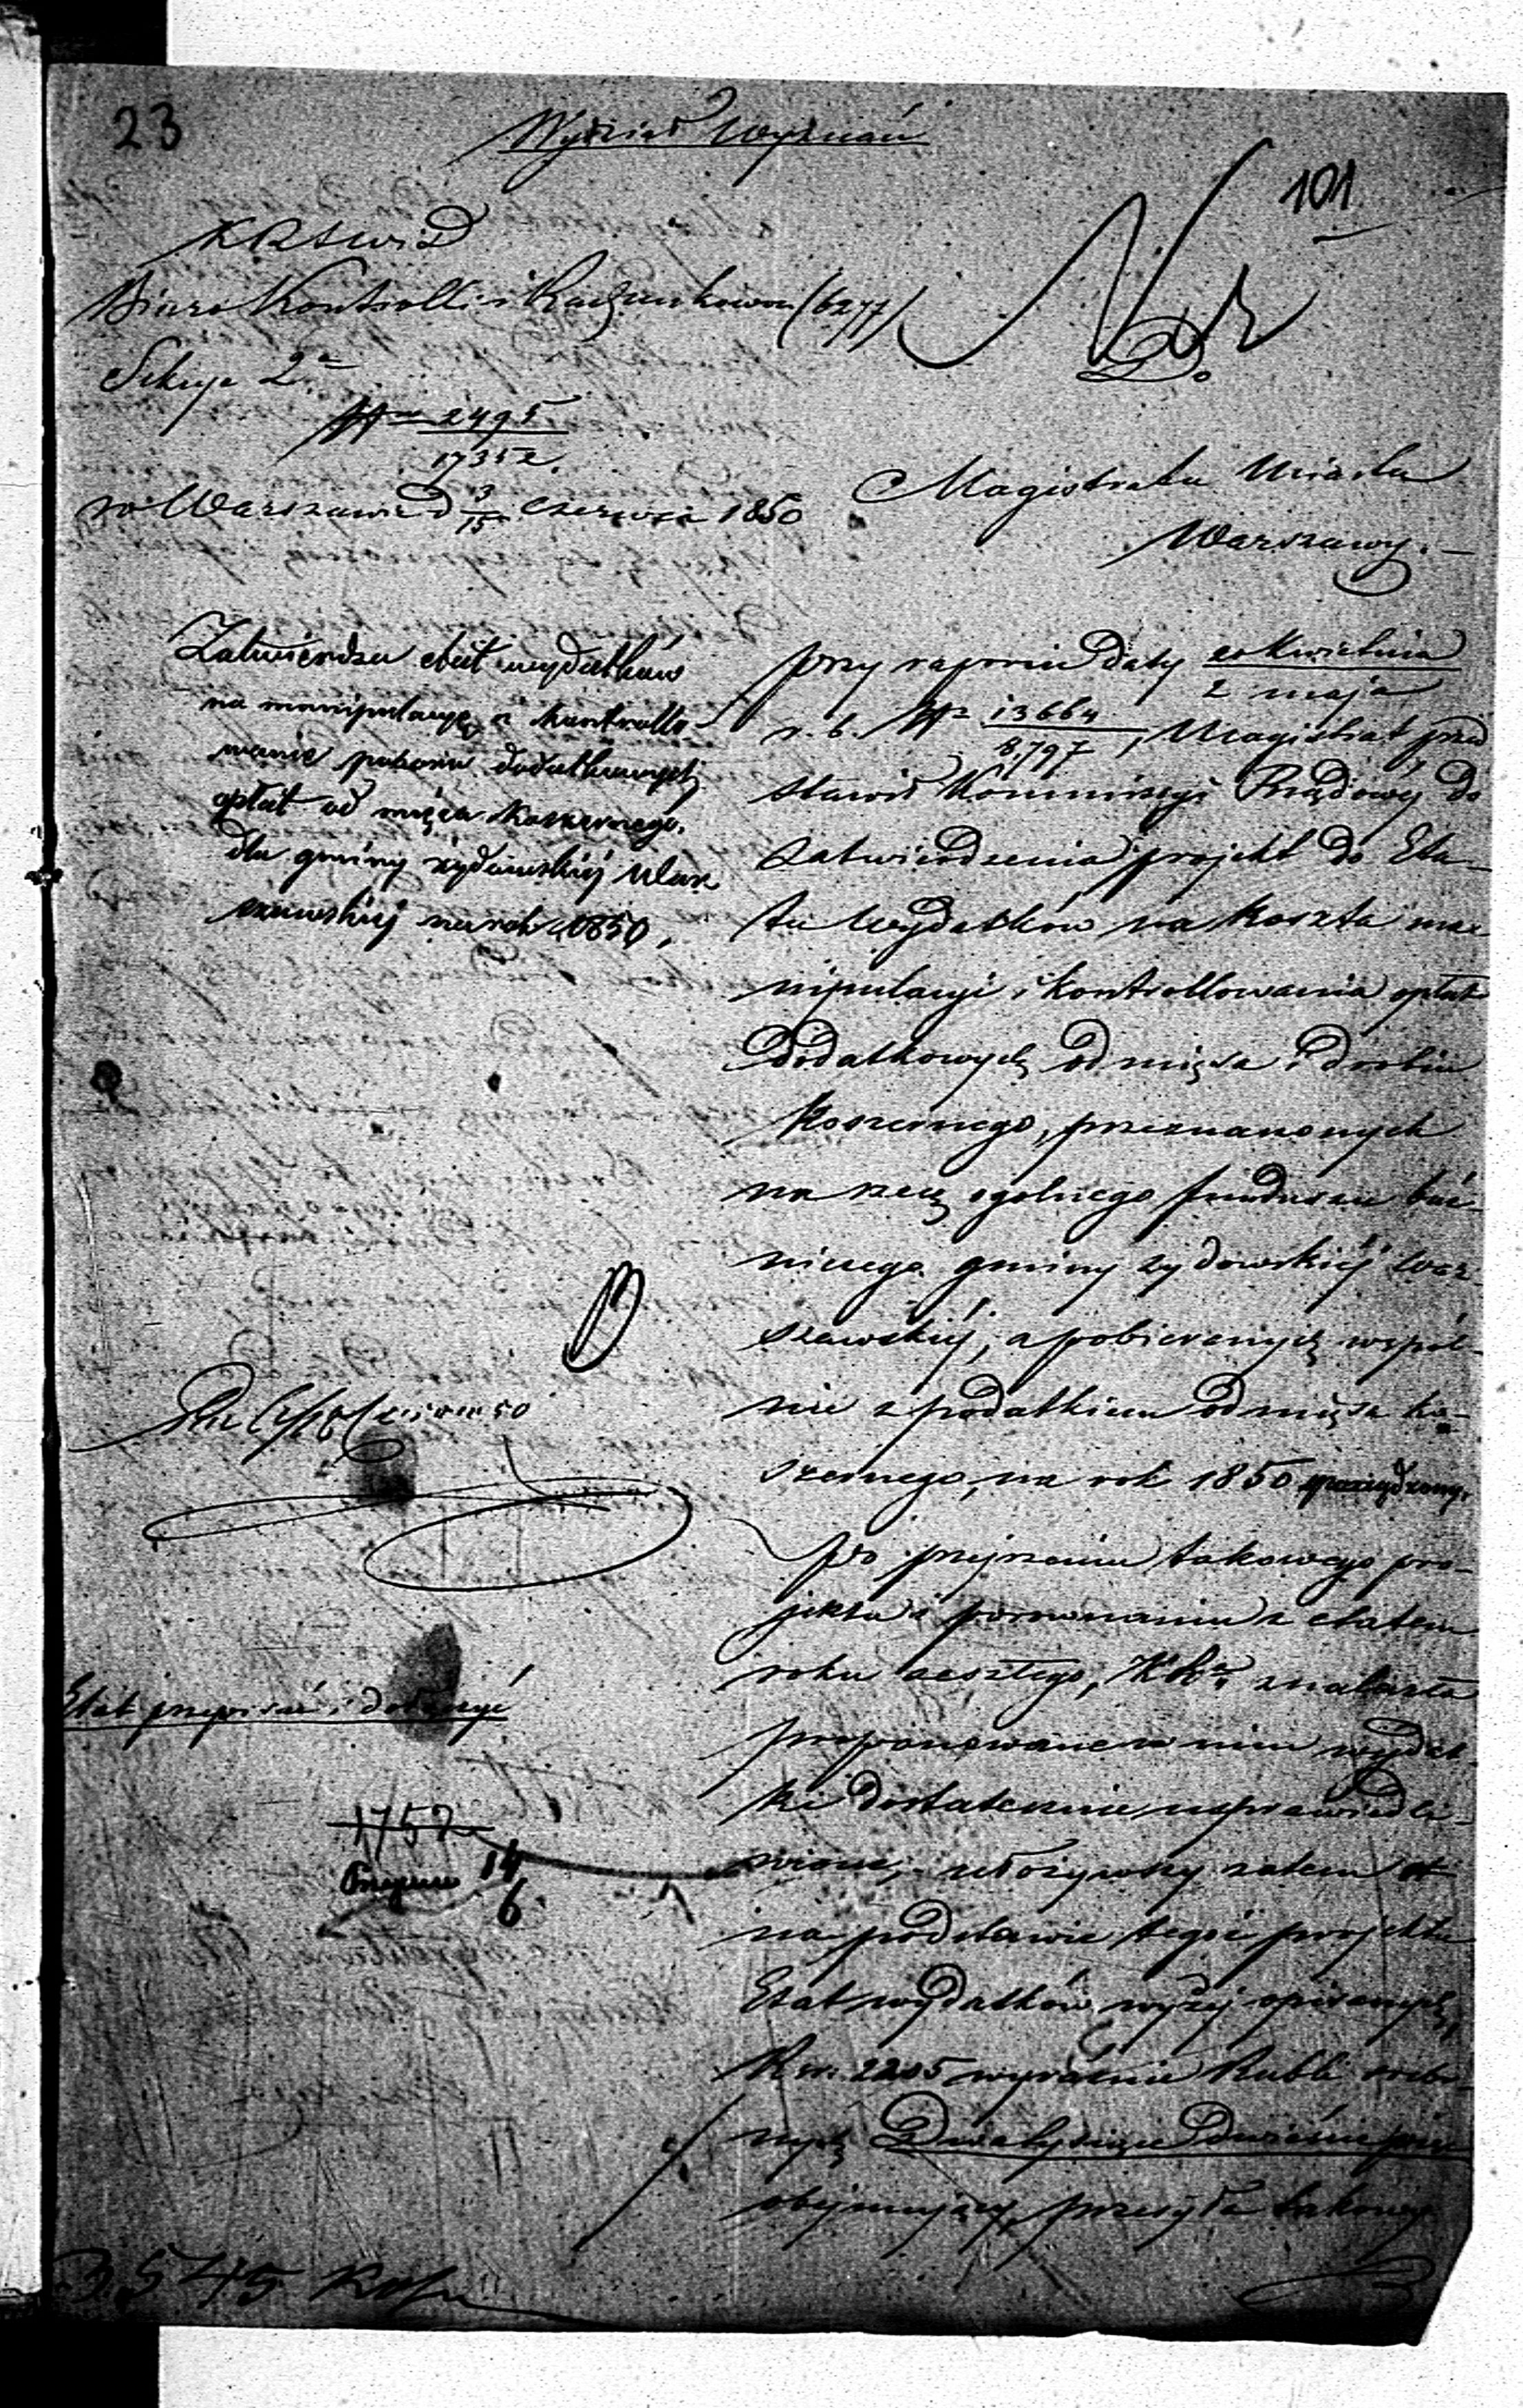 23
Wydział Wyznań
101
KRSWiD
Biuro Kontrolli i Rachunkowe (6277)
Sekcya 2a
Nr 2495
17352.
w Warszawie d 3/15 Czerwca 1850
Do
Magistratu Miasta
Warszawy.
Zatwierdza etat wydatków
na manipulacyę i kontrollo-
wanie poboru dodatkowych
opłat od mięsa koszernego,
dla gminy żydowskiéj War
szawskiéj na rok 1850,
przy raporcie daty 20 Kwietnia
2 maja
r. b. Nr 13664
8,797, Magistrat przed
stawił Kommissyi Rządowéj do
zatwierdzenia projekt do Eta-
tu Wydatków na koszta ma-
nipulacyi i kontrollowania opłat
Dodatkowych od mięsa i drobiu
koszernego, przeznaczonych
na rzecz ogolnego funduszu bóż-
niczego gminy żydowskiéj War-
szawskiéj, a pobieranych wspól-
nie z podatkiem od mięsa ko-
szernego, na rok 1850
po przejrzeniu takowego pro-
jektu i porownaniu z etatem
roku zeszłego, KRa znalazła
proponowane w nim wydat-
ki dostatecznie usprawiedli-
wione, ułożywszy zatem
na podstawie tegoż projektu
Etat wydatków wyżej opisanych,
Rsr. 2205 wyraźnie Rubli srebr-
nych Dwa tysiące Dwieście pięć
obejmujący, przesyła takowy
Etat przepisać i dołączyć
1757
14
6
3545